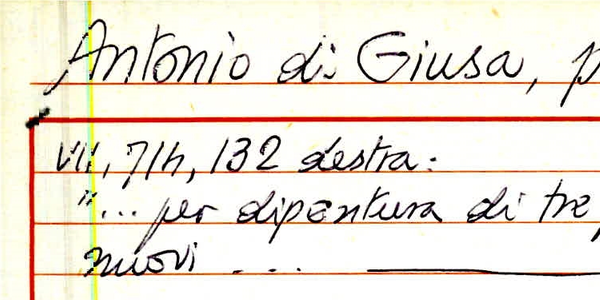 Antonio di Giusa, p
VII, 7/h, 132 destra:
"... per dipentura di tre
nuovi ...